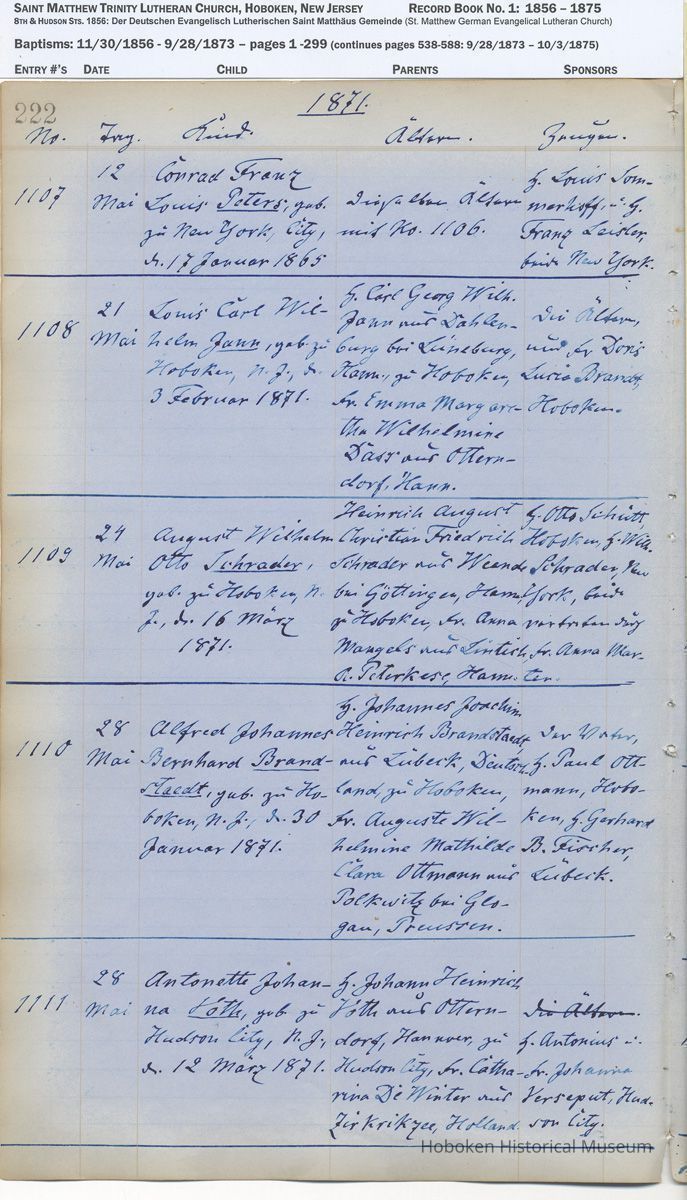 SAINT MATTHEW TRINITY LUTHERAN CHURCH, HOBOKEN, NEW JERSEY RECORD BOOK NO. 1: 1856 – 1875
8TH & HUDSON STS. 1856: Der Deutschen Evangelisch Lutherischen Saint Matthäus Gemeinde (St. Matthew German Evangelical Lutheran Church)
Baptisms: 11/30/1856 - 9/28/1873 – pages 1 -299 (continues pages 538-588: 9/28/1873 – 10/3/1875)
ENTRY #'S DATE CHILD PARENTS SPONSORS
222
1871.
No. Tag. Kind. Ältern. Zeugen.
1107
12
Mai
Conrad Franz
Louis Peters, geb.
zu New York, City,
d. 17 Januar 1865
Dieselben Ältern
mit No. 1106.
H. Louis Som-
merhoff, u. H.
Franz Leisler,
beide New York.
1108
21
Mai
Louis Carl Wil-
helm Jann, geb. zu
Hoboken, N. J., d.
3 Februar 1871.
H. Carl Georg Wilh.
Jann aus Dahlen-
burg bei Lüneburg,
Hann., zu Hoboken,
Fr. Emma Margare-
tha Wilhelmine
Dass aus Ottern-
dorf, Hann.
Die Ältern,
und Fr. Doris
Lucia Brandt,
Hoboken.
1109
24
Mai
August Wilhelm
Otto Schrader,
geb. zu Hoboken, N.
J., d. 16 März
1871.
Heinrich August
Christian Friedrich
Schrader aus Weende
bei Göttingen, Hann.,
zu Hoboken, Fr. Anna
Mangels aus Lintich
a. Peterkese, Hann.
H. Otto Schütt,
Hoboken, H. Wilh.
Schrader, New
York, beide
vertreten durch
Fr. Anna Mar-
ter.
1110
28
Mai
Alfred Johannes
Bernhard Brand-
staedt, geb. zu Ho-
boken, N. J., d. 30
Januar 1871.
H. Johannes Joachim
Heinrich Brandstaedt,
aus Lübeck, Deutsch-
land, zu Hoboken,
Fr. Auguste Wil-
helmine Mathilde
Clara Ottmann aus
Polkwitz bei Glo-
gau, Preussen.
Der Vater,
H. Paul Ott-
mann, Hobo-
ken, H. Gerhard
B. Fischer,
Lübeck.
1111
28
Mai
Antonette Johan-
na Voth, geb. zu
Hudson City, N. J.,
d. 12 März 1871.
H. Johann Heinrich
Voth aus Ottern-
dorf, Hannover, zu
Hudson City, Fr. Catha-
rina De Winter aus
Zirkrikzee, Holland.
Die Ältern.
H. Antonius u.
Fr. Johanna
Verseput, Hud-
son City.
Hoboken Historical Museum